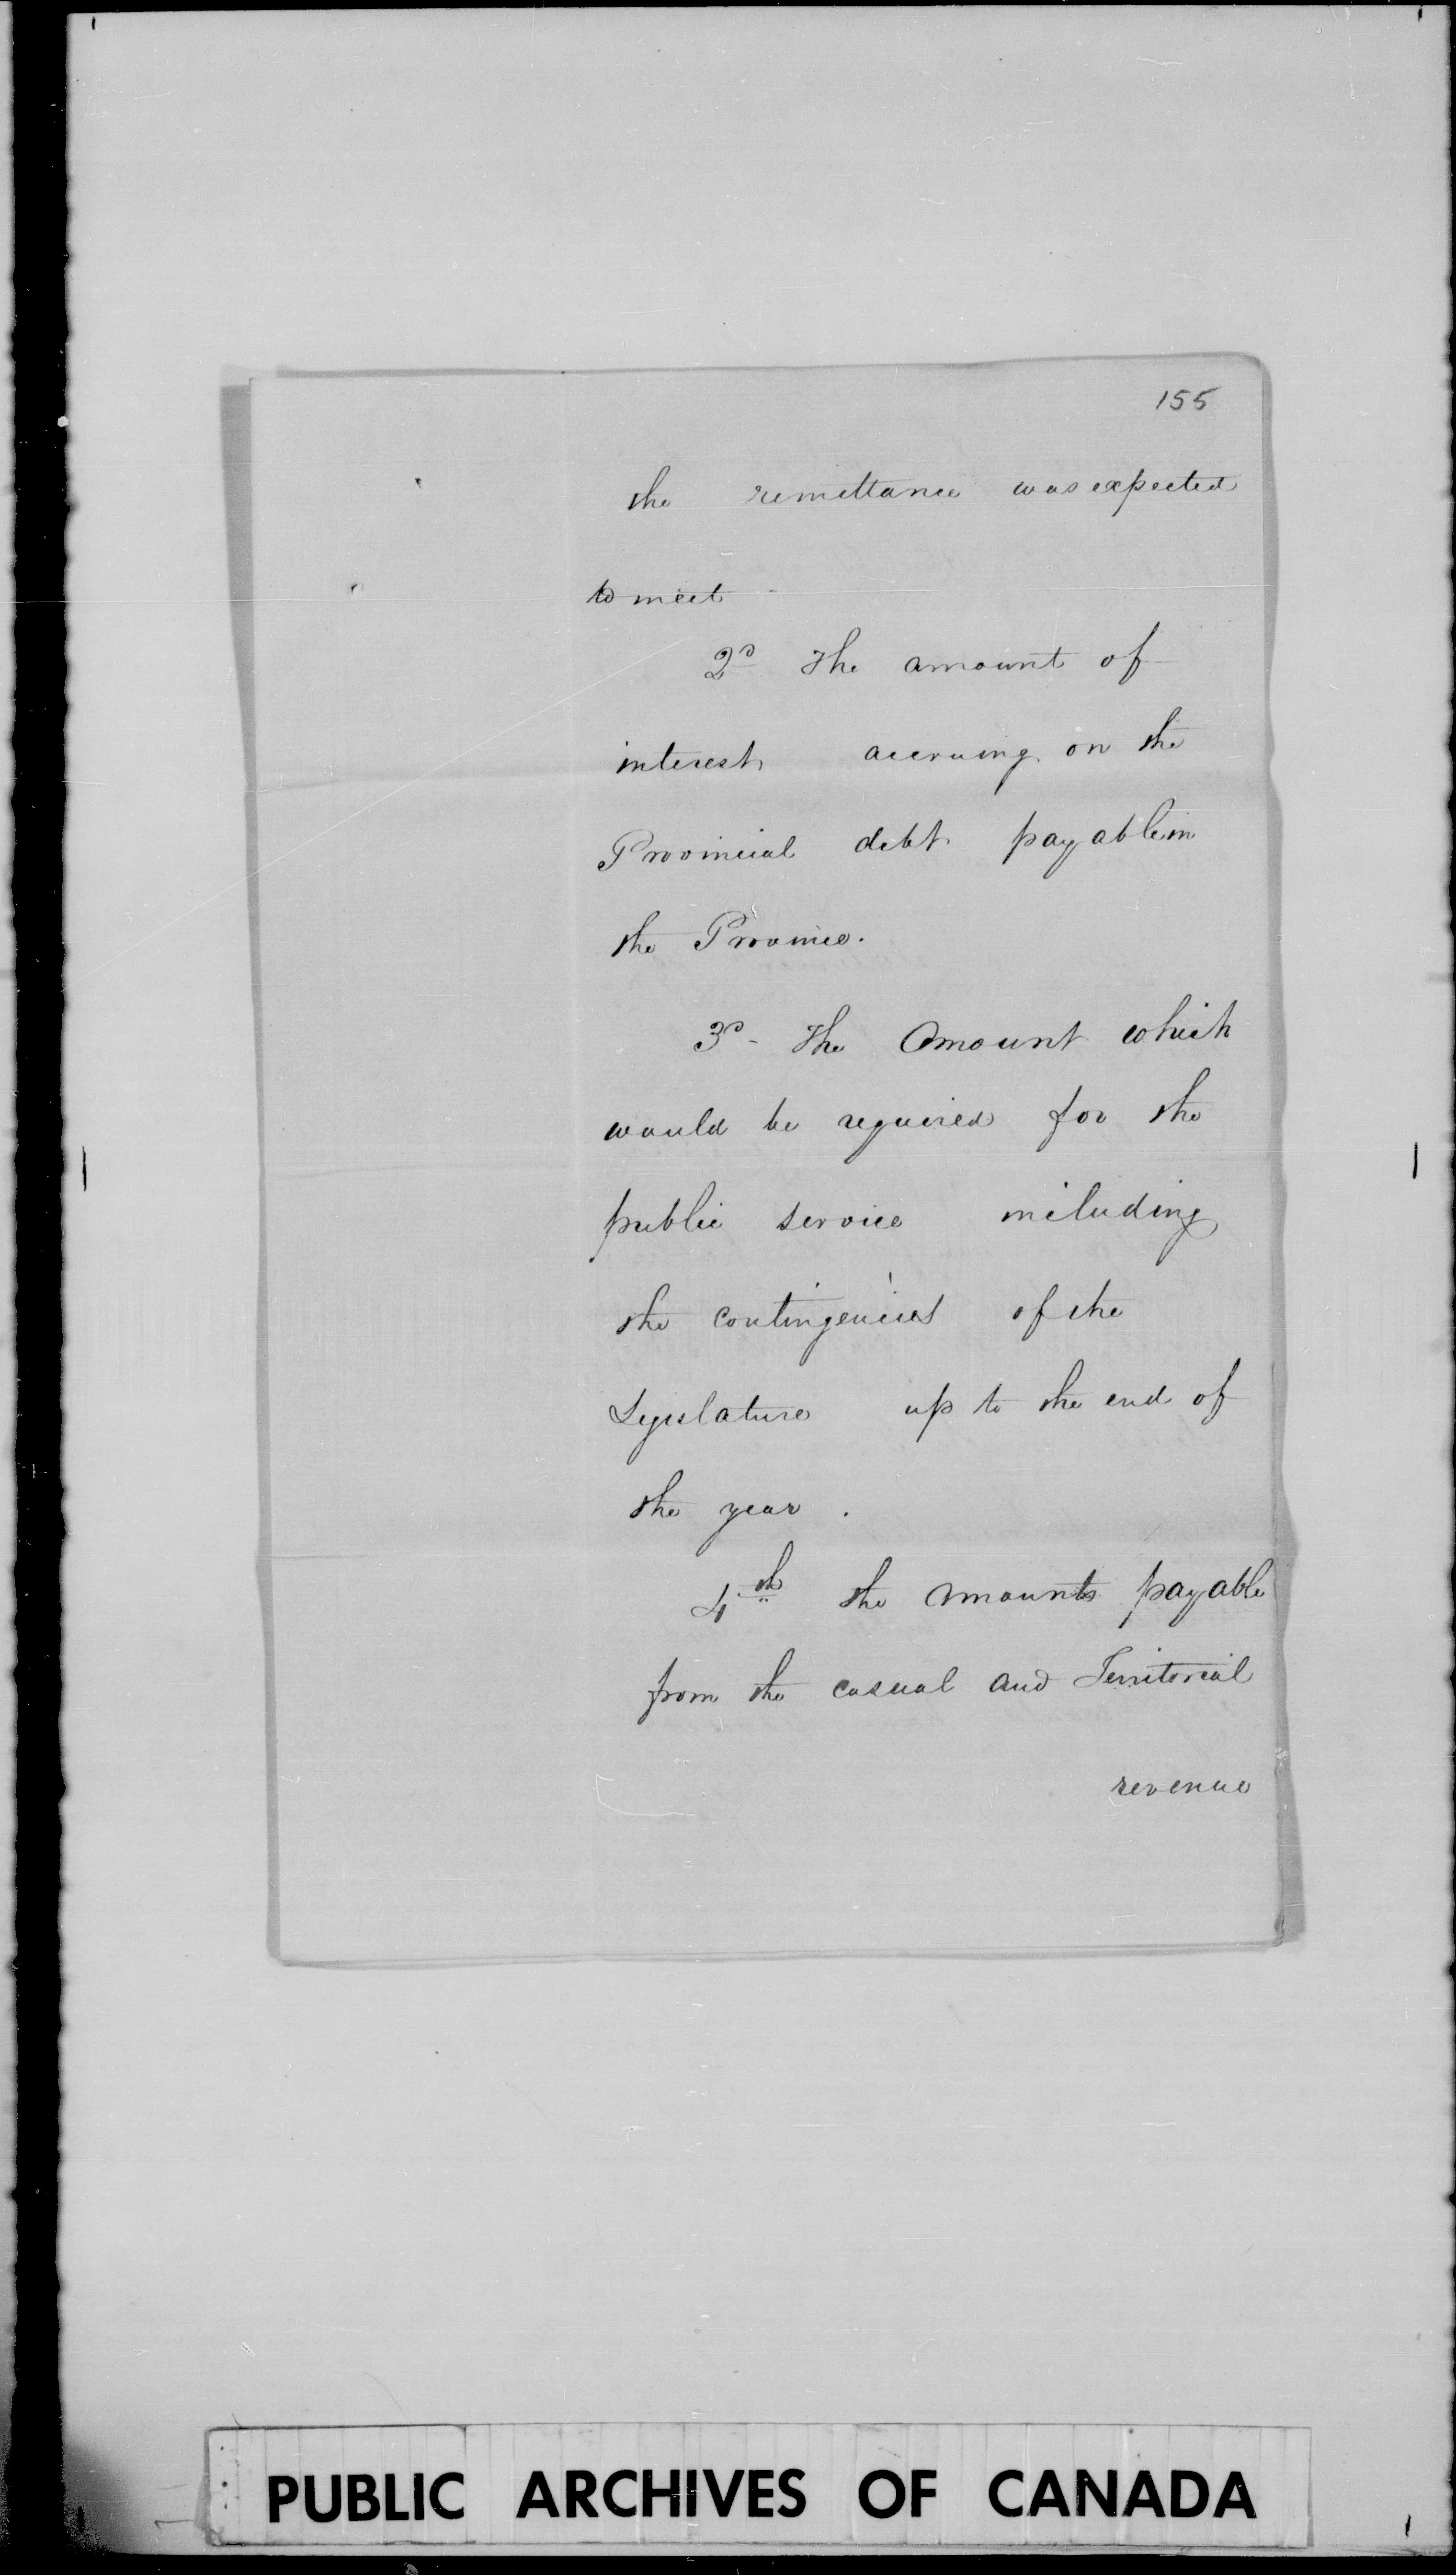 155
the remittance was expected
to meet
2d The amount of
interest accruing on the
Provincial debt payable in
the Province.
3d - The Amount which
would be required for the
public service including
the contingencies of the
Legislature up to the end of
the year.
4th the amounts payable
from the casual and Territorial
revenue
PUBLIC ARCHIVES OF CANADA